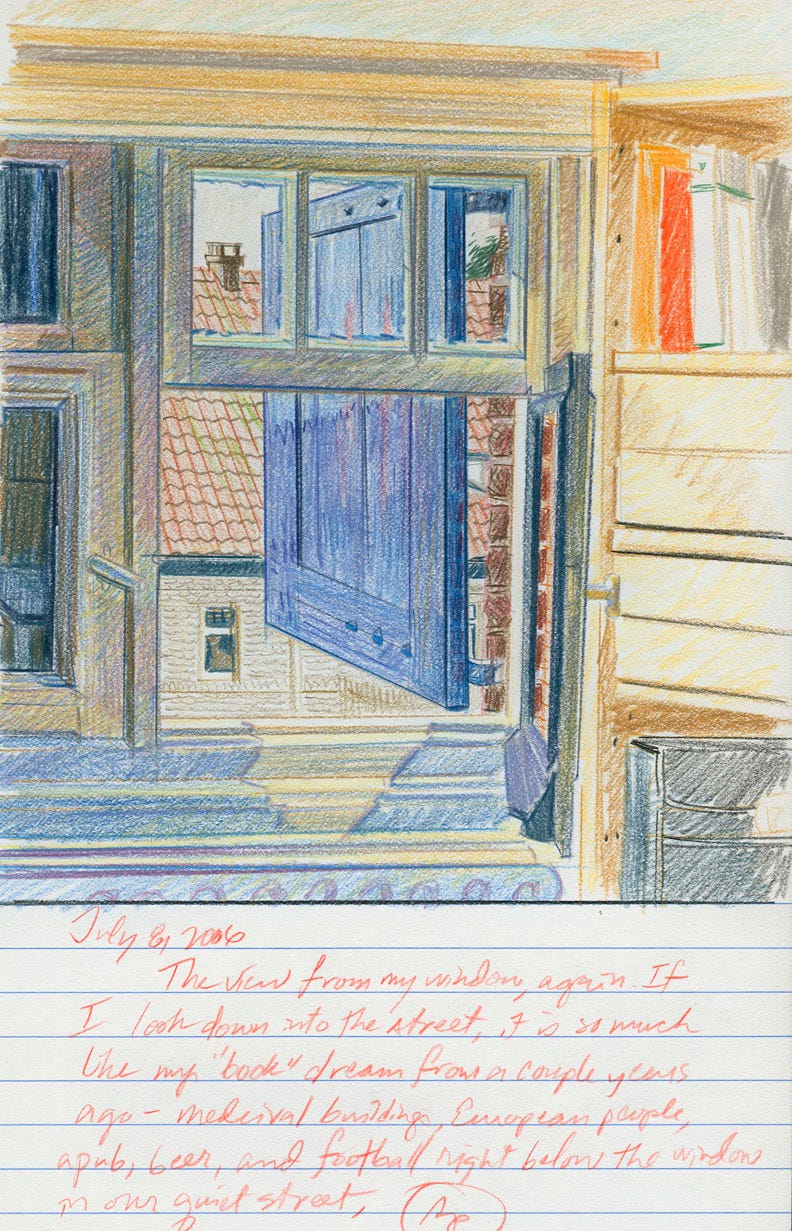 July 8, 2006
The view from my window, again. If
I look down into the street, it is so much
like my "book" dream from a couple years
ago - medieval buildings, European people,
a pub, beer, and football right below the window
in our quiet street.